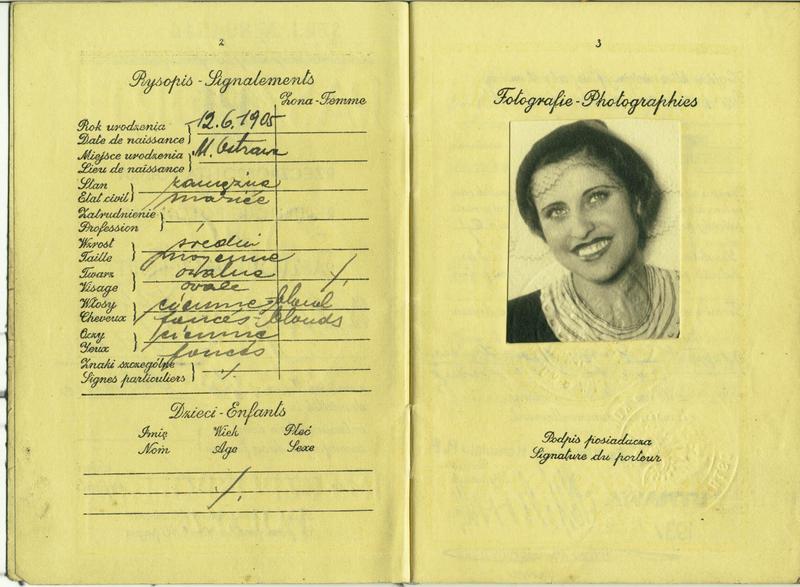 2
Rysopis - Signalements
Żona - Femme
Rok urodzenia
Date de naissance
12.6.1905
Miejsce urodzenia
Lieu de naissance
M. Ostrawa
Stan
Etat civil
zamężna
mariée
Zatrudnienie
Profession
Wzrost
Taille
średni
moyenne
Twarz
Visage
owalna
ovale
Włosy
Cheveux
ciemne-blond
foncés-blonds
Oczy
Yeux
ciemne
foncés
Znaki szczególne
Signes particuliers
Dzieci - Enfants
Imię Wiek Płeć
Nom Age Sexe
3
Fotografie - Photographies
Podpis posiadacza
Signature du porteur